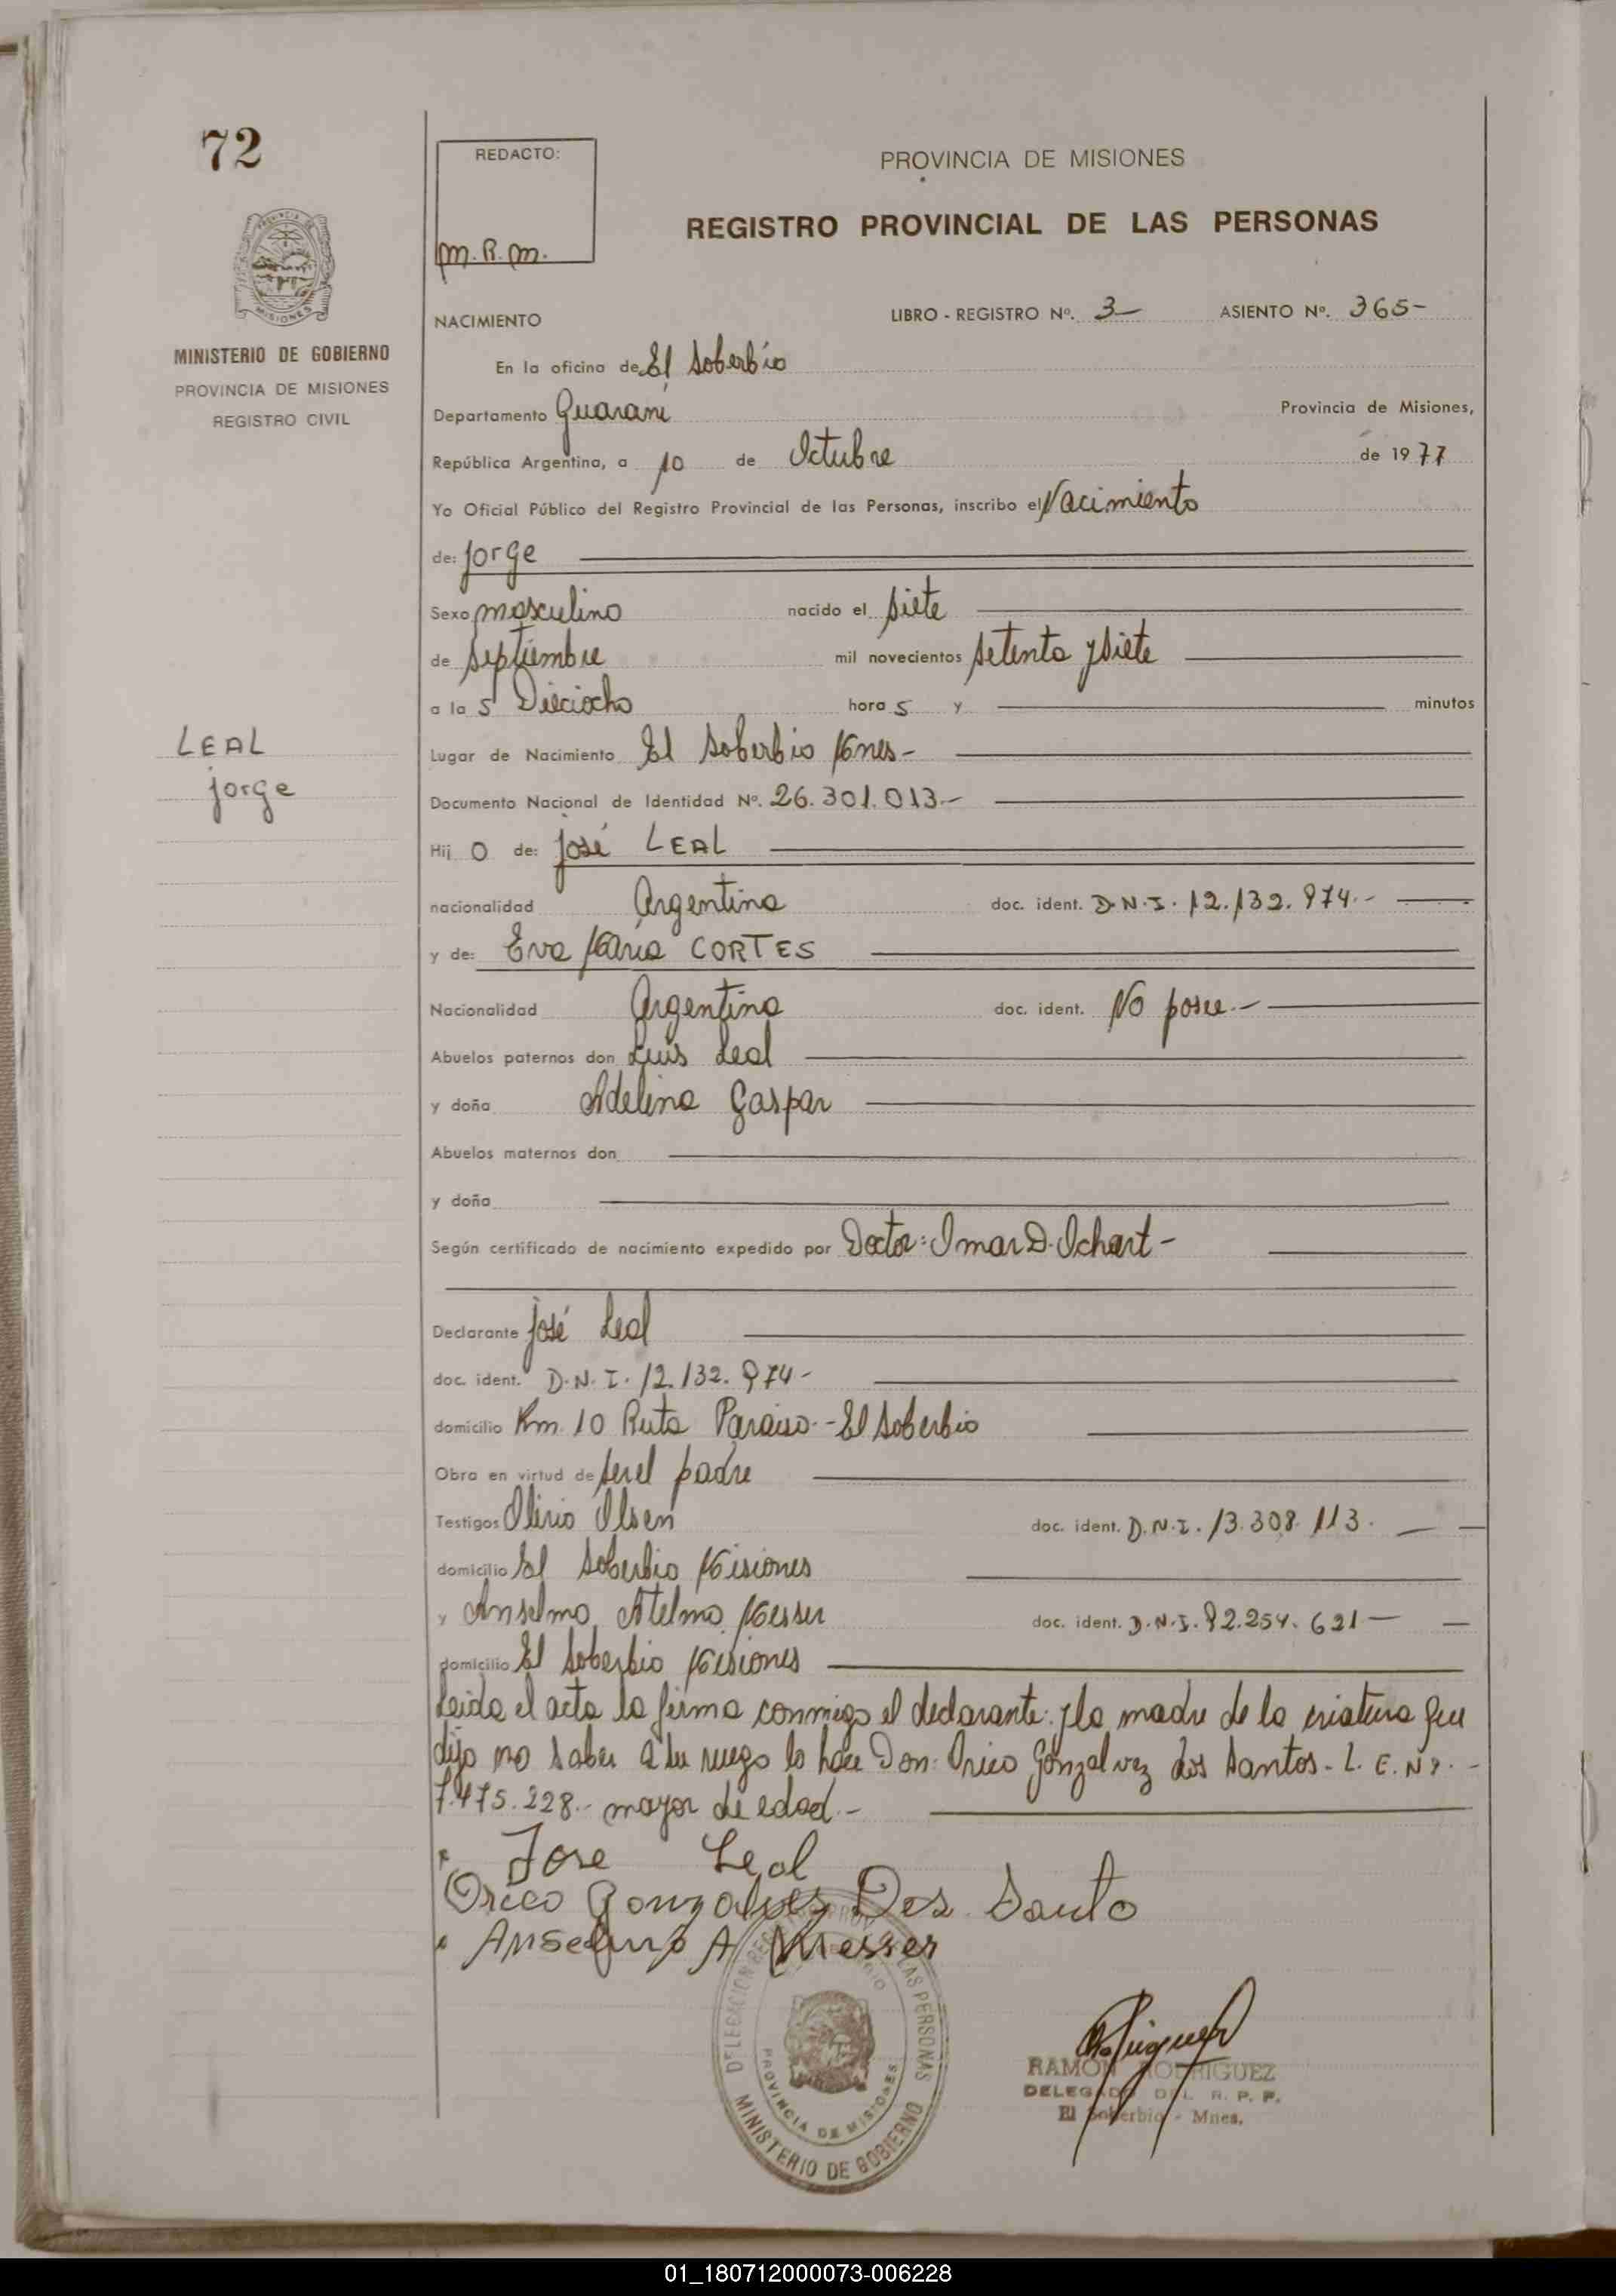 72
REDACTO:
m.R.m.
PROVINCIA DE MISIONES
REGISTRO PROVINCIAL DE LAS PERSONAS
MISIONES
MINISTERIO DE GOBIERNO
PROVINCIA DE MISIONES
REGISTRO CIVIL
NACIMIENTO LIBRO - REGISTRO Nº. 3 — ASIENTO Nº. 365-
En la oficina de El Soberbio
Departamento Guaraní Provincia de Misiones,
República Argentina, a 10 de Octubre de 1977
Yo Oficial Público del Registro Provincial de las Personas, inscribo el Nacimiento
de: Jorge
Sexo masculino nacido el siete
de septiembre mil novecientos setenta y siete
a las Dieciocho horas y — minutos
LEAL
Jorge
Lugar de Nacimiento El Soberbio Mnes-
Documento Nacional de Identidad Nº. 26.301.013.-
Hijo de: José LEAL
nacionalidad Argentina doc. ident. D.N.I. 12.132.974.-
y de: Eva María CORTES
Nacionalidad Argentina doc. ident. No posee.-
Abuelos paternos don Luis Leal
y doña Adelina Gaspar
Abuelos maternos don —
y doña —
Según certificado de nacimiento expedido por Doctor: Omar D. Ichart -
Declarante José Leal
doc. ident. D.N.I. 12.132.974-
domicilio Km. 10 Ruta Paraiso.- El Soberbio
Obra en virtud de ser el padre
Testigos Olirio Olsen doc. ident. D.N.I. 13.308.113.
domicilio El Soberbio Misiones
y Anselmo Atelmo Messer doc. ident. D.N.I. 92.254.621 —
domicilio El Soberbio Misiones
Leida el acta la firma conmigo el declarante: y la madre de la criatura que
dijo no saber a su ruego lo hace Don: Orico Gonzalvez dos Santos - L.E.Nº.-
7.475.228.- mayor de edad.-
Jose Leal
Orico Gonzalves Dos Santo
Anselmo A Messer
DELEGACION REGISTRO PROV. DE LAS PERSONAS
PROVINCIA DE MISIONES
MINISTERIO DE GOBIERNO
RAMON RODRIGUEZ
DELEGADO DEL R. P. P.
El Soberbio - Mnes.
01_180712000073-006228